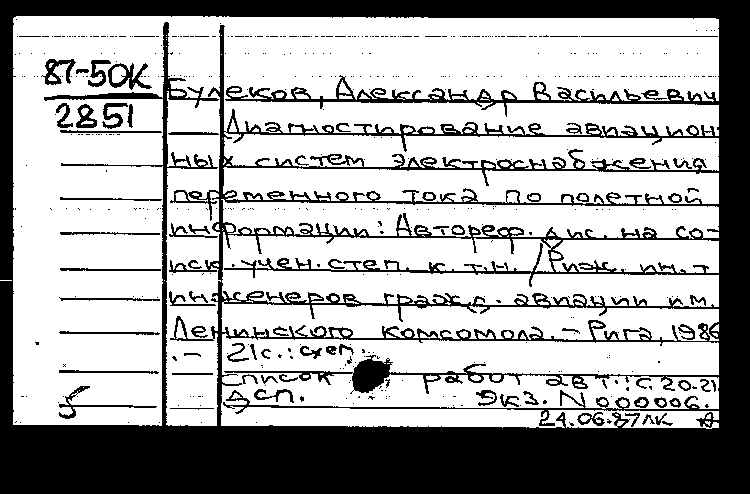 87-50К
2851
Булеков, Александр Васильевич
Диагностирование авиацион-
ных систем электроснабжения
переменного тока по полетной
информации: Автореф. дис. на со-
иск. учен. степ. к.т.н. / Риж. ин-т
инженеров гражд. авиации им.
Ленинского комсомола. – Рига, 1986
. – 21с.: схем
Список работ авт.: с. 20-21
Дсп. Экз. N000006.
5
24.06.87лк